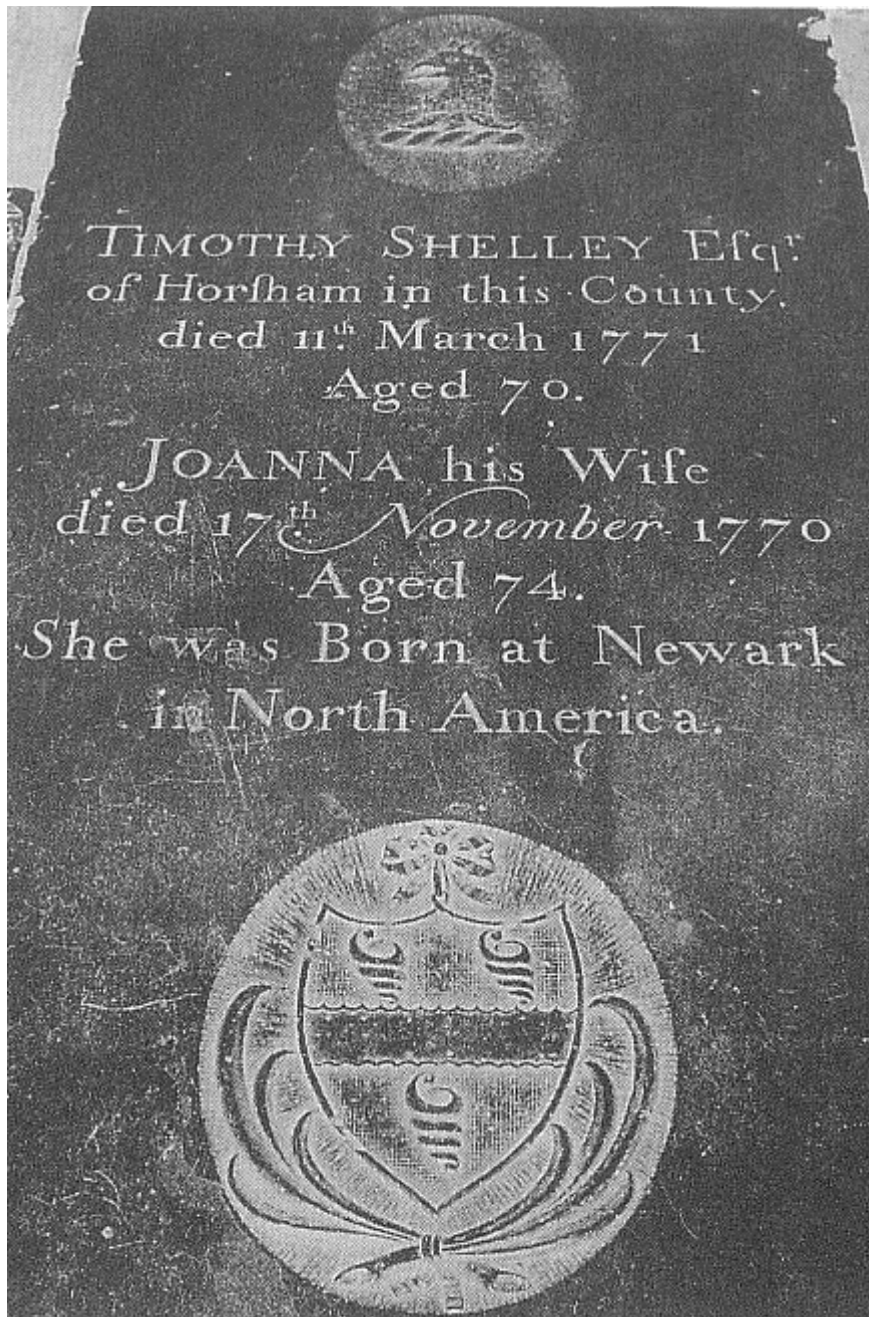 TIMOTHY SHELLEY Eſqr.
of Horſham in this County.
died 11th. March 1771
Aged 70.
JOANNA his Wife
died 17th. November 1770
Aged 74.
She was Born at Newark
in North America.